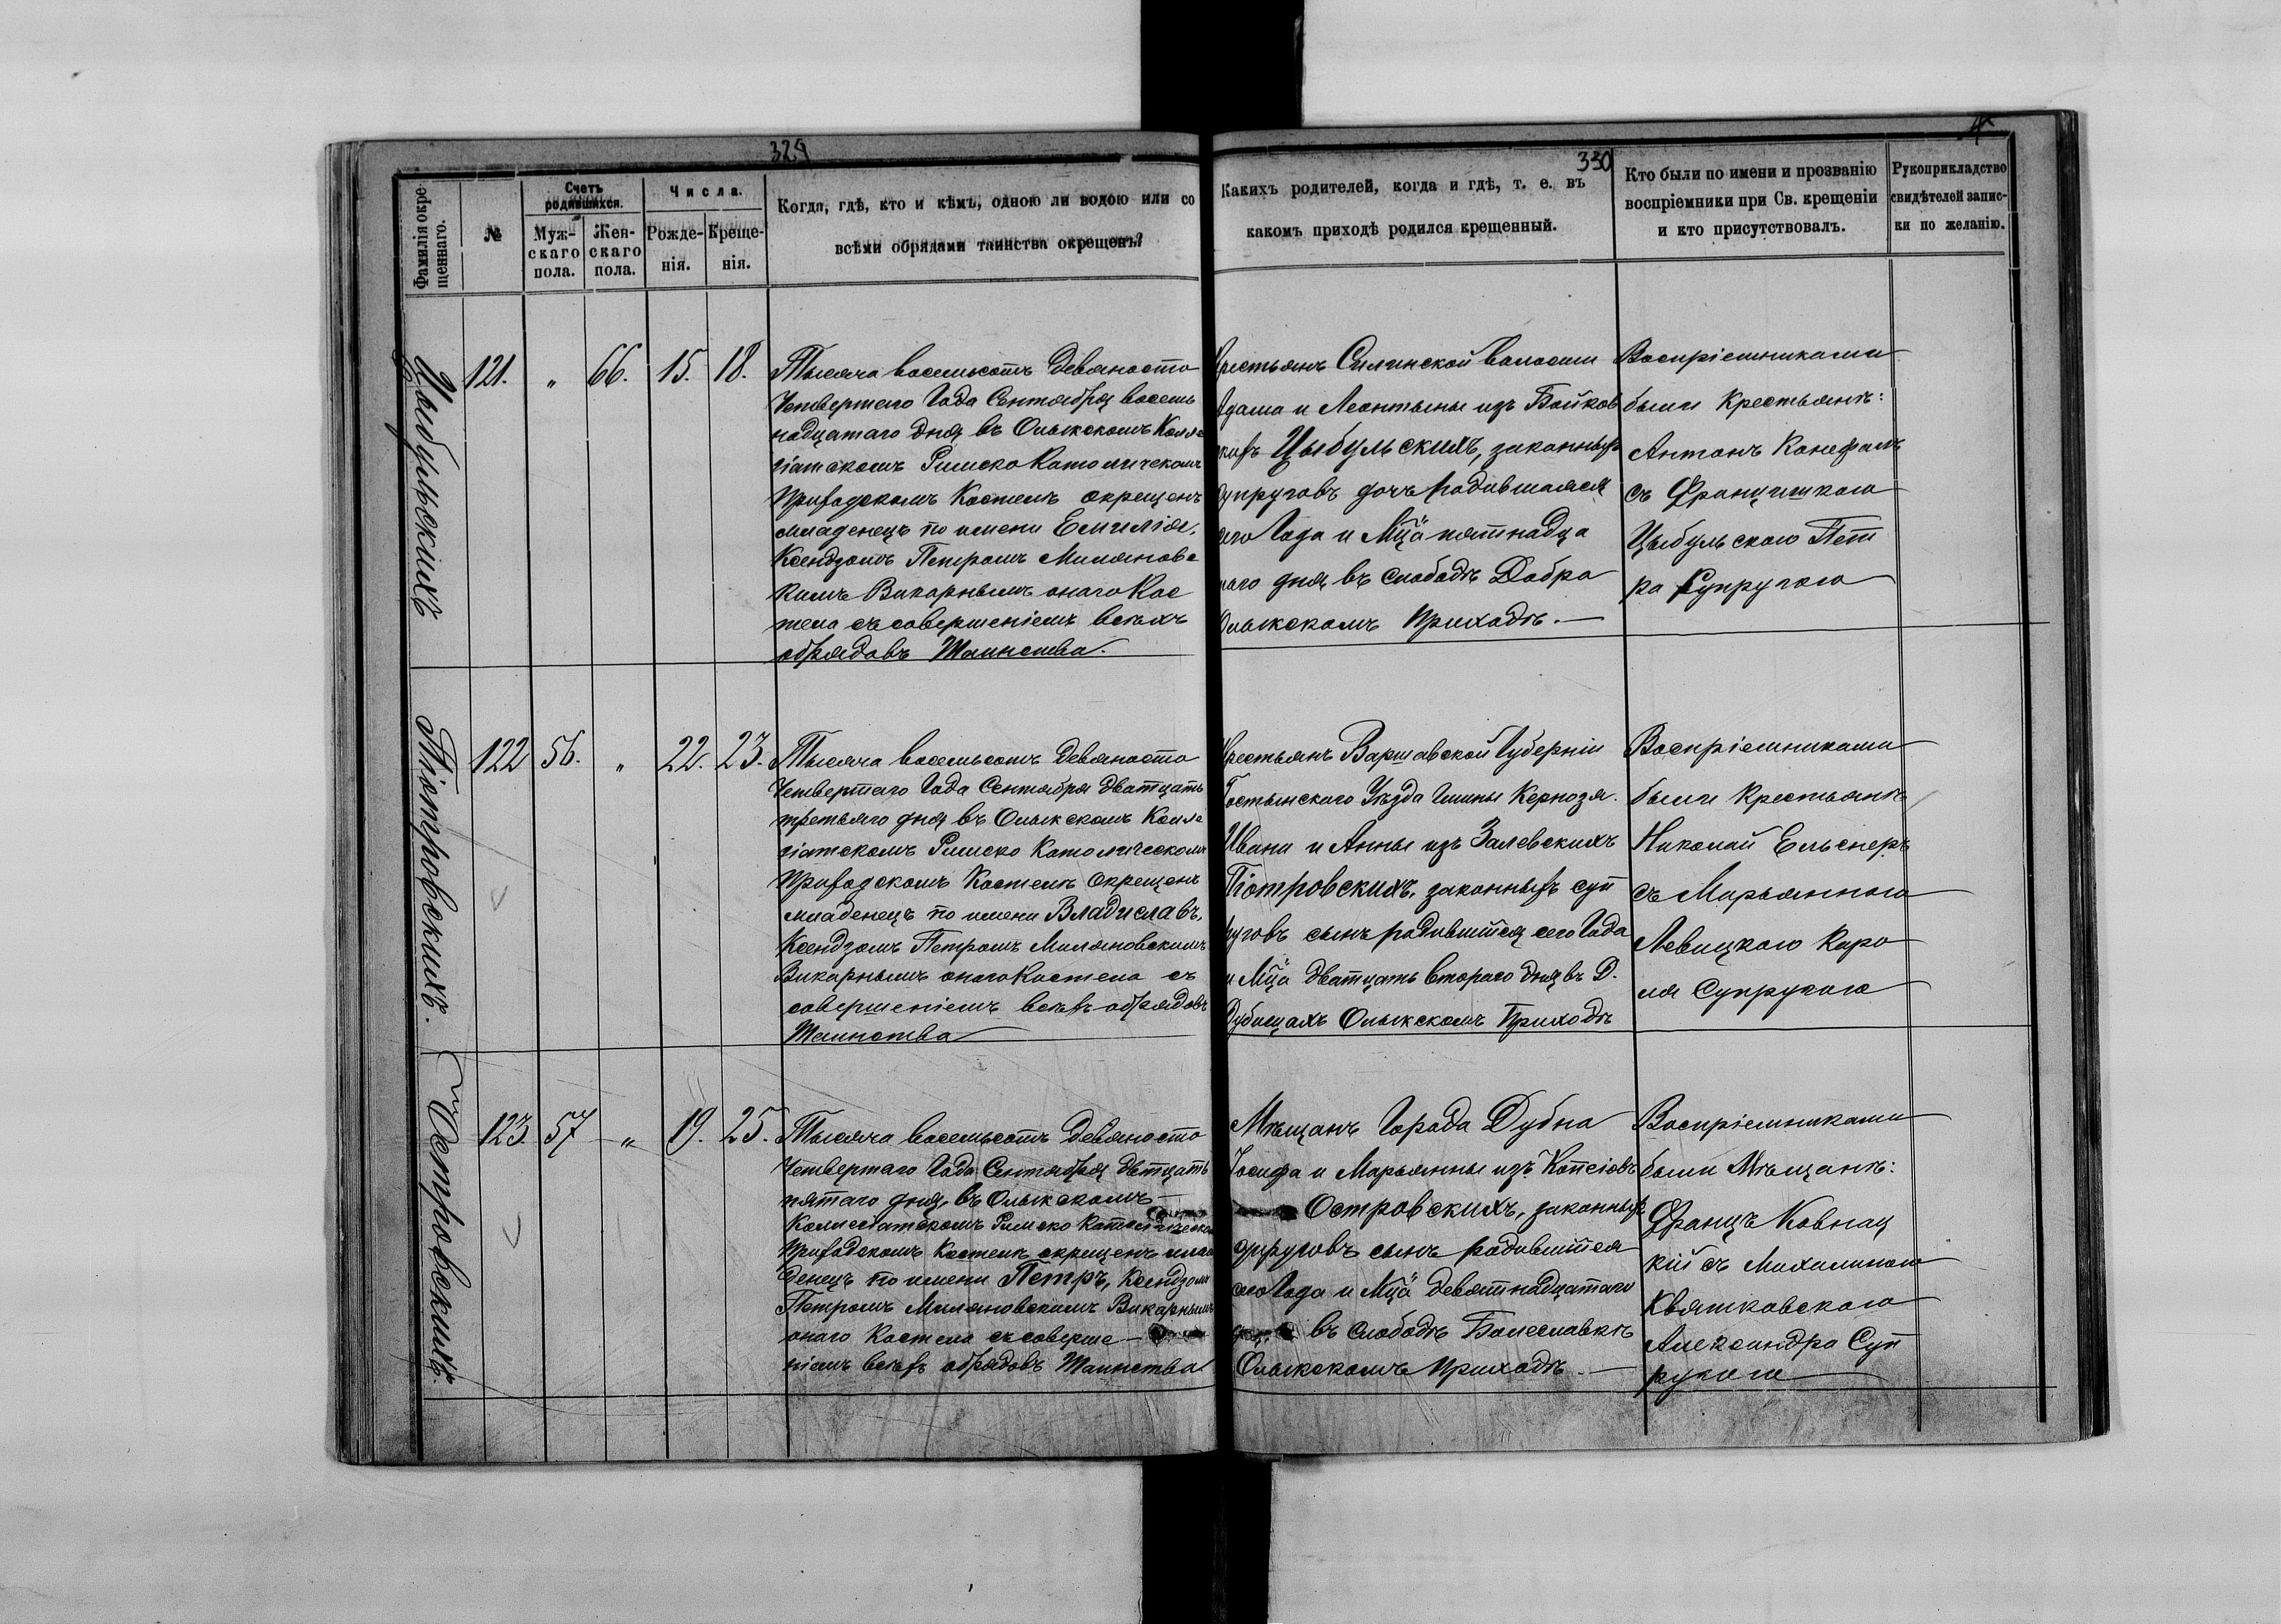 329
Фамилія окре-
щеннаго.
№
Счетъ
родившихся.
Муж-
скаго
пола.
Жен-
скаго
пола.
Числа.
Рожде-
нія.
Креще-
нія.
Когда, гдѣ, кто и кѣмъ, одною ли водою или со
всѣми обрядами таинства окрещенъ?
330
Какихъ родителей, когда и гдѣ, т. е. въ
какомъ приходѣ родился крещенный.
Кто были по имени и прозванію
воспріемники при Св. крещеніи
и кто присутствовалъ.
Рукоприкладство
свидѣтелей запис-
ки по желанію.
Цыбульскихъ
121. „ 66. 15. 18.
Тысяча восемьсотъ девяносто
Четвертаго Года Сентября восем
надцатаго дня въ Олыкскомъ Колле
гіатскомъ Римско Католичекомъ
Приходскомъ Костелѣ окрещенъ
младенецъ по имени Емилія,
Ксендзомъ Петромъ Миляновс
кимъ Викарнымъ онаго Кос
тела съ совершеніемъ всѣхъ
обрядовъ Таинства.
Крестьянъ Силинской Волости
Адама и Леонтыны изъ Бойков
кихъ Цыбульскихъ, законныхъ
супруговъ дочь родившаяся
сего Года и Мца пятнадца
таго дня въ слободѣ Добра
Олыкскомъ Приходѣ. —
Воспріемниками
были Крестьянѣ:
Антонъ Канефалъ
съ Францишкою
Цыбульскою Пет
ра Супругою
Піотровскихъ.
122 56. „ 22. 23.
Тысяча восемьсотъ девяносто
Четвертаго Года Сентября дватцать
третьяго дня въ Олыкскомъ Колле
гіатскомъ Римско Католическомъ
Приходскомъ Костелѣ Окрещенъ
младенецъ по имени Владиславъ,
Ксендзомъ Петромъ Миляновскимъ
Викарнымъ онаго Костела съ
совершеніемъ всѣхъ обрядовъ
Таинства
Крестьянъ Варшавской Губерніи
Гостынского Уѣзда Гмины Кернозя.
Ивана и Анны изъ Залевскихъ
Піотровскихъ, законныхъ суп
руговъ сынъ родившійся сего Года
и Мца дватцать втораго дня въ Д.
Дубищахъ Олыкскомъ Приходѣ
Воспріемниками
были Крестьянѣ
Николай Ельснеръ
съ Марьянною
Левицкою Каро
ля Супругою
Островскихъ.
123. 57 „ 19. 25.
Тысяча восемьсотъ девяносто
Четвертаго Года Сентября дватцать
пятаго дня, въ Олыкскомъ
Коллегіатскомъ Римско Католическомъ
Приходскомъ Костелѣ окрещенъ мла
денецъ по имени Петръ, Ксендзомъ
Петромъ Миляновскимъ Викарнымъ
онаго Костела съ соверше—
ніемъ всѣхъ обрядовъ Таинства
Мѣщанъ Города Дубна
Іосифа и Марьянны изъ
Островскихъ, законныхъ
супруговъ сынъ родившійся
сего Года и Мца девятнадцатаго
въ слободѣ Болеславкѣ
Олыкскомъ Приходѣ —
Воспріемниками
были Мѣщанѣ:
Францъ Ковнац
кій съ Михалиною
Квятковскою
Александра Суп
ругою